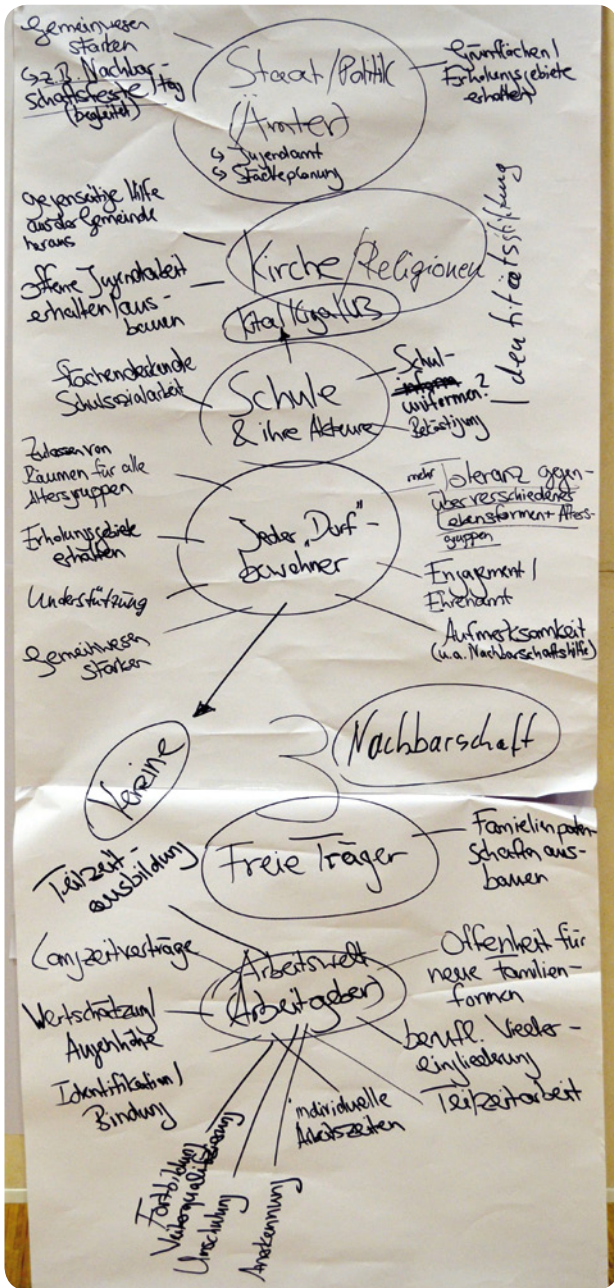 Gemeinwesen
stärken
↳ z.B. Nachbar-
schaftsfeste/tag
(begleitet)
Staat/Politik
(Ämter)
↳ Jugendamt
↳ Städteplanung
Grünflächen/
Erholungsgebiete
erhalten
gegenseitige Hilfe
aus der Gemeinde
heraus
offene Jugendarbeit
erhalten/aus-
bauen
Kirche/Religionen
Kita/Kiga/
Identitätsstiftung
flächendeckende
Schulsozialarbeit
Schule
& ihre Akteure
Schul-
uniformen?
Betätigung
Zulassen von
Räumen für alle
Altersgruppen
Erholungsgebiete
erhalten
Unterstützung
Gemeinwesen
stärken
Jeder „Dorf"-
bewohner
mehr Toleranz gegen-
über verschiedenes
Lebensformen + Alters-
gruppen
Engagement/
Ehrenamt
Aufmerksamkeit
(u.a. Nachbarschaftshilfe)
Vereine
Nachbarschaft
Freie Träger
Familienpaten-
schaften aus-
bauen
Teilzeit-
ausbildung
Langzeitverträge
Wertschätzung/
Augenhöhe
Identifikation/
Bindung
Arbeitswelt
(Arbeitgeber)
Offenheit für
neue Familien-
formen
berufl. Wieder-
eingliederung
Teilzeitarbeit
individuelle
Arbeitszeiten
Fortbildung
Weiterqualifizierung
Umschulung
Anerkennung